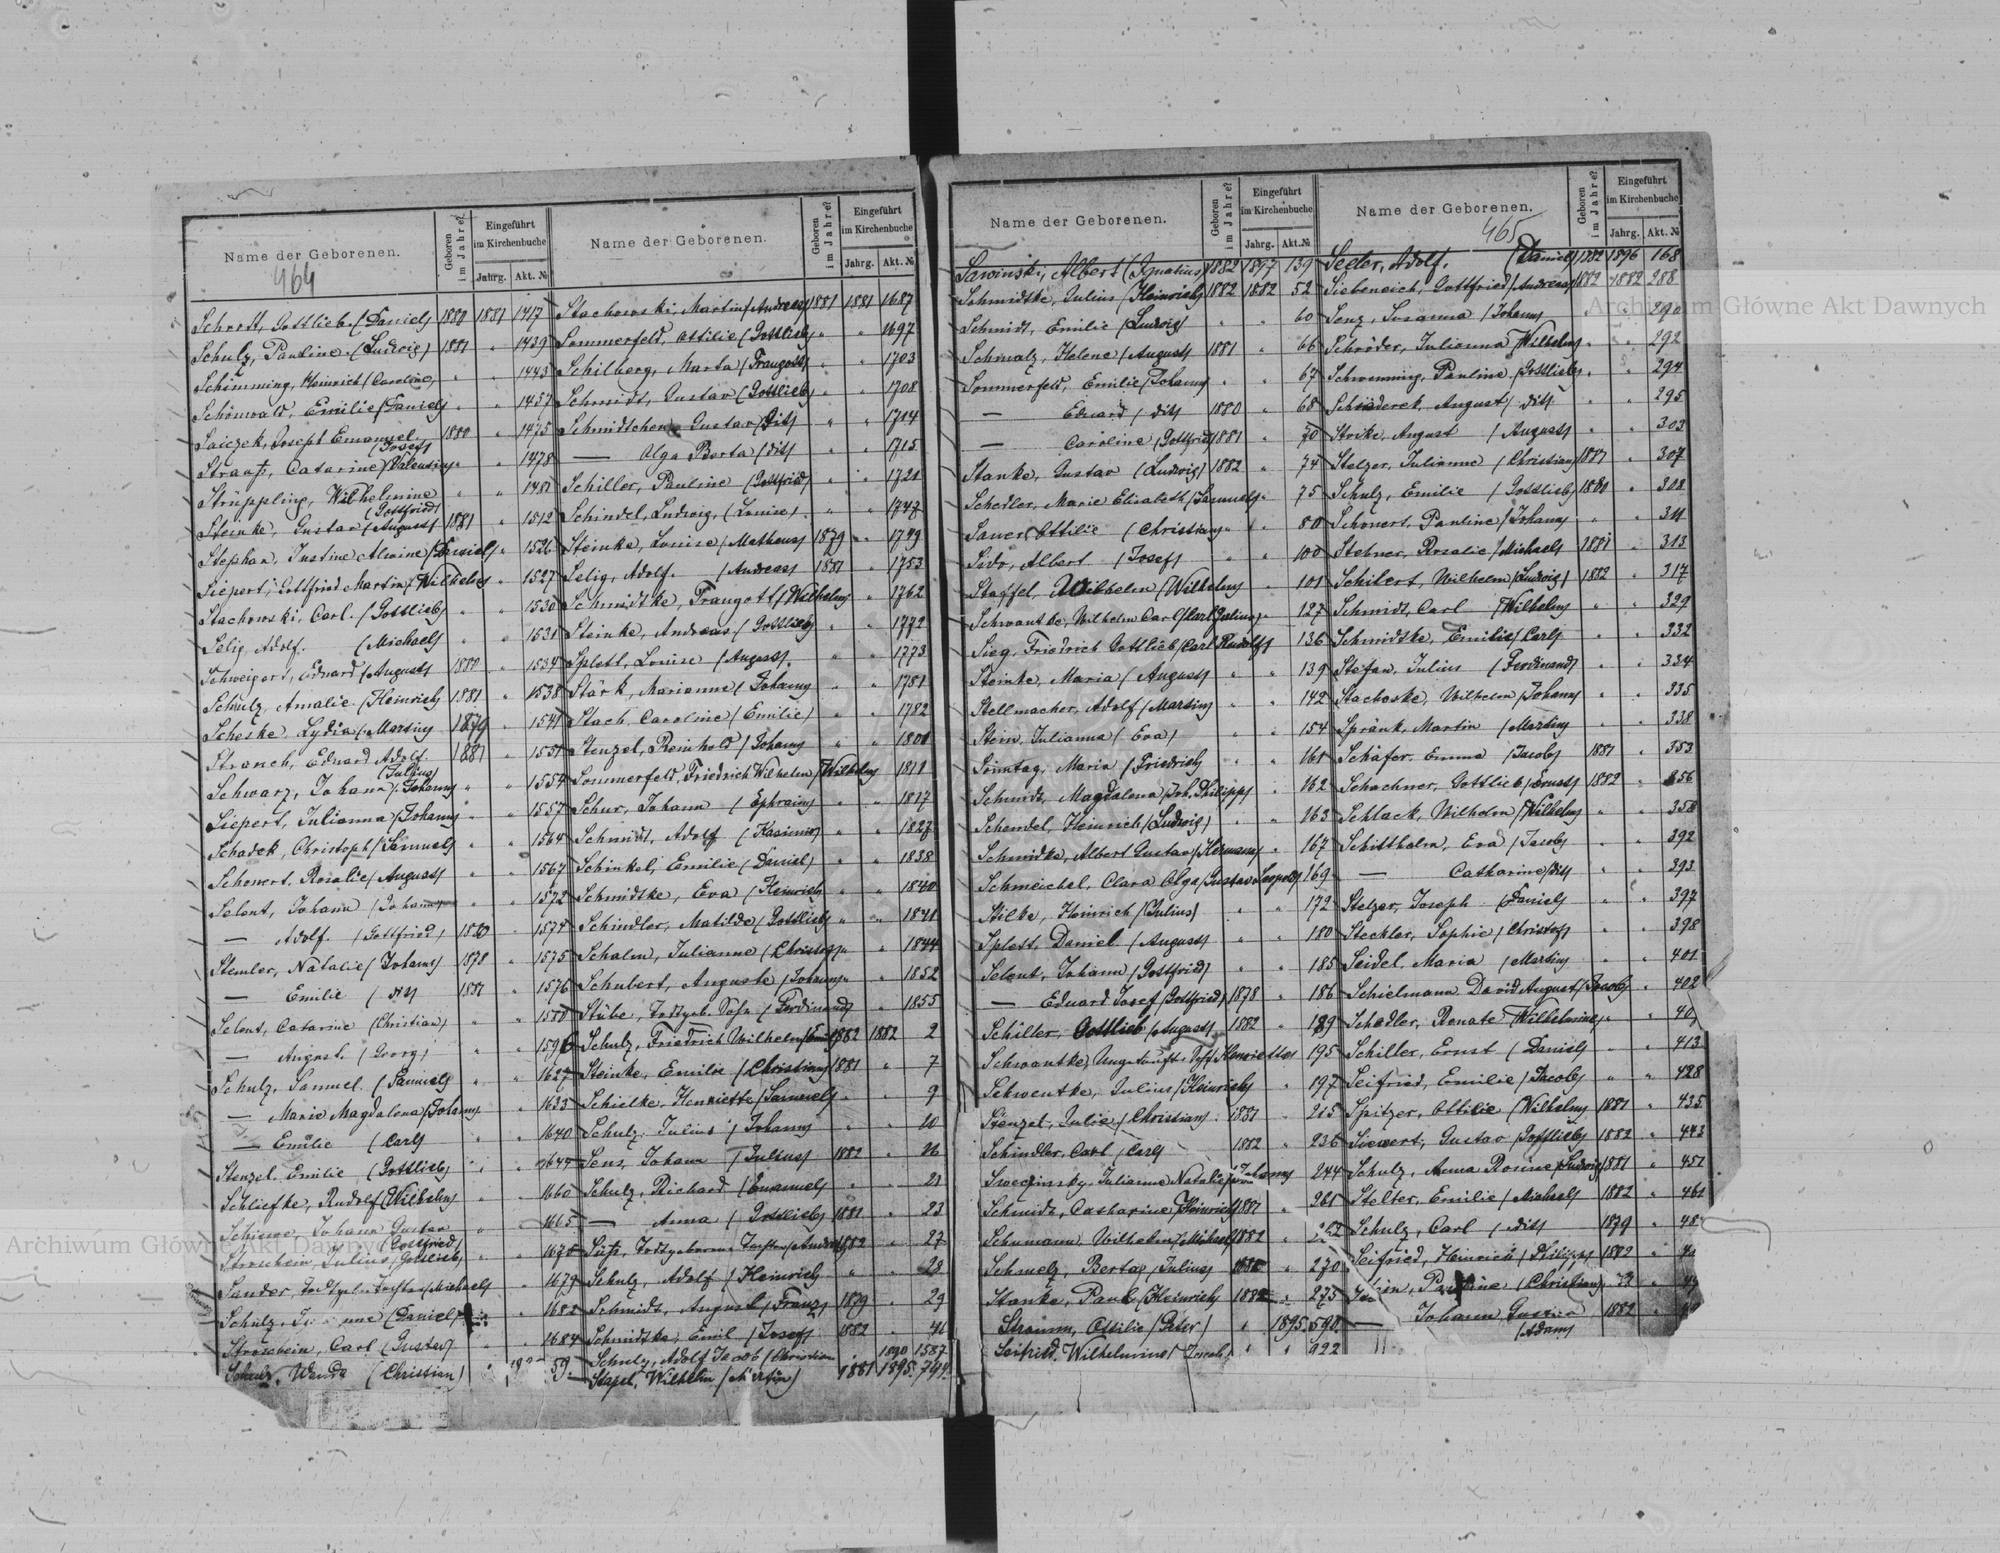 Archiwum Główne Akt Dawnych
Archiwum Główne Akt Dawnych
464
Name der Geborenen. Geboren im Jahre? Eingeführt im Kirchenbuche Jahrg. Akt. №
Schrott, Gottlieb (Daniel) 1880 1881 1417
Schulz, Pauline (Ludwig) 1881 " 1439
Schimming, Heinrich (Caroline) " " 1443
Schönwald, Emilie (Daniel) " " 1457
Saiczek, Joseph Emanuel (Josef) 1880 " 1475
Strauß, Catarine (Valentin) " " 1478
Strüppling, Wilhelmine (Gottfried) " " 1481
Steinke, Gustav (August) 1881 " 1512
Stephan, Justine Alwine (Daniel) " " 1526
Siepert, Gottfried Martin (Wilhelm) " 1527
Stachowski, Carl (Gottlieb) " " 1530
Selig, Adolf. (Michael) " " 1531
Schweigert, Eduard (August) 1880 " 1534
Schulz, Amalie (Heinrich) 1881 " 1538
Scheske, Lydia (Martin) 1879 " 1541
Strauch, Eduard Adolf (Julius) 1881 " 1551
Schwarz, Johann (Johann) " " 1554
Siepert, Julianna (Johann) " " 1557
Schadek, Christoph (Samuel) " " 1564
Schonert, Rosalie (August) " " 1567
Selent, Johann (Johann) " " 1572
— Adolf (Gottfried) 1880 " 1574
Stemler, Natalie (Johann) 1878 " 1575
— Emilie (dit) 1881 " 1576
Selent, Catarine (Christian) " " 1580
— August (Georg) " " 1596
Schulz, Samuel (Samuel) " " 1627
— Marie Magdalena (Johann) " 1633
— Emilie (Carl) " " 1640
Stenzel, Emilie (Gottlieb) " " 1647
Schliefke, Rudolf (Wilhelm) " " 1660
Schiewe, Johann Gustav (Gottfried) " " 1665
Stroschein, Julius (Gottlieb) " " 1678
Sander, Todtgeb. Tochter (Michael) " 1679
Schulz, (Daniel) 1682
Stroschein, Carl (Gustav) " " 1684
Schulz, Wanda (Christian) 59
Name der Geborenen. Geboren im Jahre? Eingeführt im Kirchenbuche Jahrg. Akt. №
Stachowski, Martin (Andreas) 1881 1881 1687
Sommerfeld, Ottilie (Gottlieb) " " 1697
Schilberg, Marta (Traugott) " " 1703
Schmidt, Gustav (Gottlieb) " " 1708
Schmidtchen, Gustav (Dit) " " 1714
— Olga Berta (dit) " " 1715
Schiller, Pauline (Gottfried) " " 1721
Schindel, Ludwig, (Louise) " " 1747
Steinke, Louise (Matheus) 1879 " 1749
Selig, Adolf. (Andreas) 1881 " 1753
Schmidtke, Traugott (Wilhelm) " 1762
Steinke, Andreas (Gottlieb) " " 1772
Splett, Louise (August) " " 1773
Stärk, Marianna (Johann) " " 1781
Stach, Caroline (Emilie) " " 1782
Stenzel, Reinhold (Johann) " " 1801
Sommerfeld, Friedrich Wilhelm (Wilhelm) 1811
Schur, Johann (Ephraim) " " 1817
Schmidt, Adolf (Kasimir) " " 1827
Schinkel, Emilie (Daniel) " " 1838
Schmidtke, Eva (Heinrich) " " 1840
Schindler, Matilde (Gottlieb) " " 1841
Schalm, Julianne (Christof) " " 1844
Schubert, Auguste (Johann) " " 1852
Stübe, Todtgeb. Sohn (Ferdinand) " 1855
Schulz, Friedrich Wilhelm (Emil) 1882 1882 2
Steinke, Emilie (Christian) 1881 " 7
Schielke, Henriette (Samuel) " " 9
Schulz, Julius (Johann) " " 10
Sens, Johann (Julius) 1882 " 16
Schulz, Richard (Emanuel) " " 21
— Anna (Gottlieb) 1881 " 23
Süß, Todtgeborene Tochter (Andreas) 1882 " 27
Schulz, Adolf (Heinrich) " " 28
Schmidt, August (Franz) 1879 " 29
Schmidtke, Emil (Josef) 1882 " 41
Schulz, Adolf Jacob (Christian 1890 1587
Stapel, Wilhelm (Martin) 1881 1895. 794.
Name der Geborenen. Geboren im Jahre? Eingeführt im Kirchenbuche Jahrg. Akt. №
Sawinski, Albert (Ignatius) 1882 1897 139
Schmidtke, Julius (Heinrich) 1882 1882 52
Schmidt, Emilie (Ludwig) " " 60
Schmalz, Helene (August) 1881 " 66
Sommerfeld, Emilie (Johann) " " 67
— Eduard (dit) 1880 " 68
— Caroline (Gottfried) 1881 " 70
Stanke, Gustav (Ludwig) 1882 " 74
Schedler, Marie Elisabeth (Samuel) " 75
Sauer, Ottilie (Christian) " " 80
Sido, Albert (Josef) " " 100
Staffel, Wilhelm (Wilhelm) " 101
Schwantke, Wilhelm Carl (Carl Julius) " 127
Sieg, Friedrich Gottlieb (Carl Rudolf) 136
Steinke, Maria (August) " " 139
Stellmacher, Adolf (Martin) " " 142
Stein, Julianna (Eva) " " 154
Sonntag, Maria (Friedrich) " " 161
Schmidt, Magdalena (Joh. Philipp) " 162
Schendel, Heinrich (Ludwig) " " 163
Schmidtke, Albert Gustav (Hermann) " 167
Schmeichel, Clara Olga (Gustav Leopold) 169
Stilke, Heinrich (Julius) " " 172
Splett, Daniel (August) " " 180
Selent, Johann (Gottfried) " " 185
— Eduard Josef (Gottfried) 1878 " 186
Schiller, Gottlieb (August) 1882 " 189
Schwantke, (Henriette) 195
Schwentke, Julius (Heinrich) " 197
Stenzel, Julie (Christian) 1881 " 215
Schindler, Carl (Carl) 1882 " 236
Julianne Natalie (Johann) 244
Schmidt, Catharine (Heinrich) 1881 " 261
Schumann, Wilhelm (Michael) 1882 " 262
Schmelz, Berta (Julius) 1882 " 270
Stanke, Paul (Heinrich) 1882 " 275
Stramm, Ottilie (Peter) " 1895. 590.
Seifried, Wilhelmine (Jacob) " " 922
465
Name der Geborenen. Geboren im Jahre? Eingeführt im Kirchenbuche Jahrg. Akt. №
Seeler, Adolf. (Daniel) 1882 1896 168
Siebeneich, Gottfried (Andreas) 1882 1882 288
Senz, Susanna (Johann) " " 290
Schröder, Julianna (Wilhelm) " " 292
Schwenning, Pauline (Gottlieb) " " 294
Schröderek, August (dit) " " 295
Strike, August (August) " " 302
Stelzer, Julianne (Christian) 1881 " 307
Schulz, Emilie (Gottlieb) 1880 " 308
Schonert, Pauline (Johann) " " 311
Stebner, Rosalie (Michael) 1881 " 313
Schilert, Wilhelm (Ludwig) 1882 " 317
Schmidt, Carl (Wilhelm) " " 329
Schmidtke, Emilie (Carl) " " 332
Stefan, Julius (Ferdinand) " " 334
Stachoske, Wilhelm (Johann) " " 335
Spränk, Martin (Martin) " " 338
Schäfer, Emma (Jacob) 1881 " 353
Schachner, Gottlieb (Ernst) 1882 " 356
Schlack, Wilhelm (Wilhelm) " " 358
Schittholm, Eva (Jacob) " " 392
— Catharine (dit) " " 393
Stelzer, Joseph (Daniel) " " 397
Steckler, Sophie (Christof) " " 398
Seidel, Maria (Martin) " " 401
Schielmann David August (Jacob) " 402
Schedler, Renate (Wilhelmine) " " 40
Schiller, Ernst (Daniel) " " 413
Seifried, Emilie (Jacob) " " 428
Spitzer, Ottilie (Wilhelm) 1881 " 435
Siewert, Gustav (Gottlieb) 1882 " 443
Schulz, Anna Rosine (Ludwig) 1881 " 451
Stelter, Emilie (Michael) 1882 " 461
Schulz, Carl (dit) 1879 " 48
Seifried, Heinrich (Philipp) 1882 "
(Christian)
— Johann Gustav (Adam) 1882